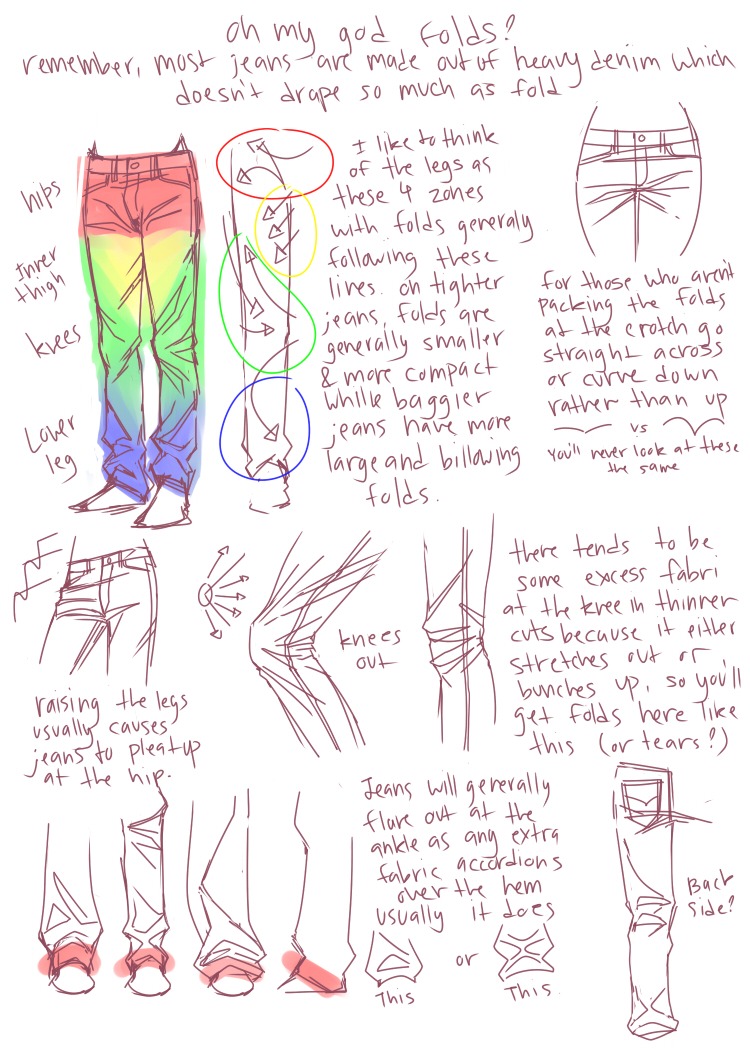 oh my god folds?
remember, most jeans are made out of heavy denim which
doesn't drape so much as fold
hips
Inner
thigh
knees
Lower
leg
I like to think
of the legs as
these 4 zones
with folds generaly
following these
lines. on tighter
jeans, folds are
generally smaller
& more compact
whille baggier
jeans have more
large and billowing
folds.
for those who aren't
packing the folds
at the crotch go
straight across
or curve down
rather than up
vs
you'll never look at these
the same
raising the legs
usually causes
jeans to pleat up
at the hip.
knees
out
there tends to be
some excess fabri
at the knee in thinner
cuts because it either
stretches out or
bunches up, so you'll
get folds here like
this (or tears?)
Jeans will generally
flare out at the
ankle as any extra
fabric accordions
over the hem
usually it does
or
This
This
Back
side?